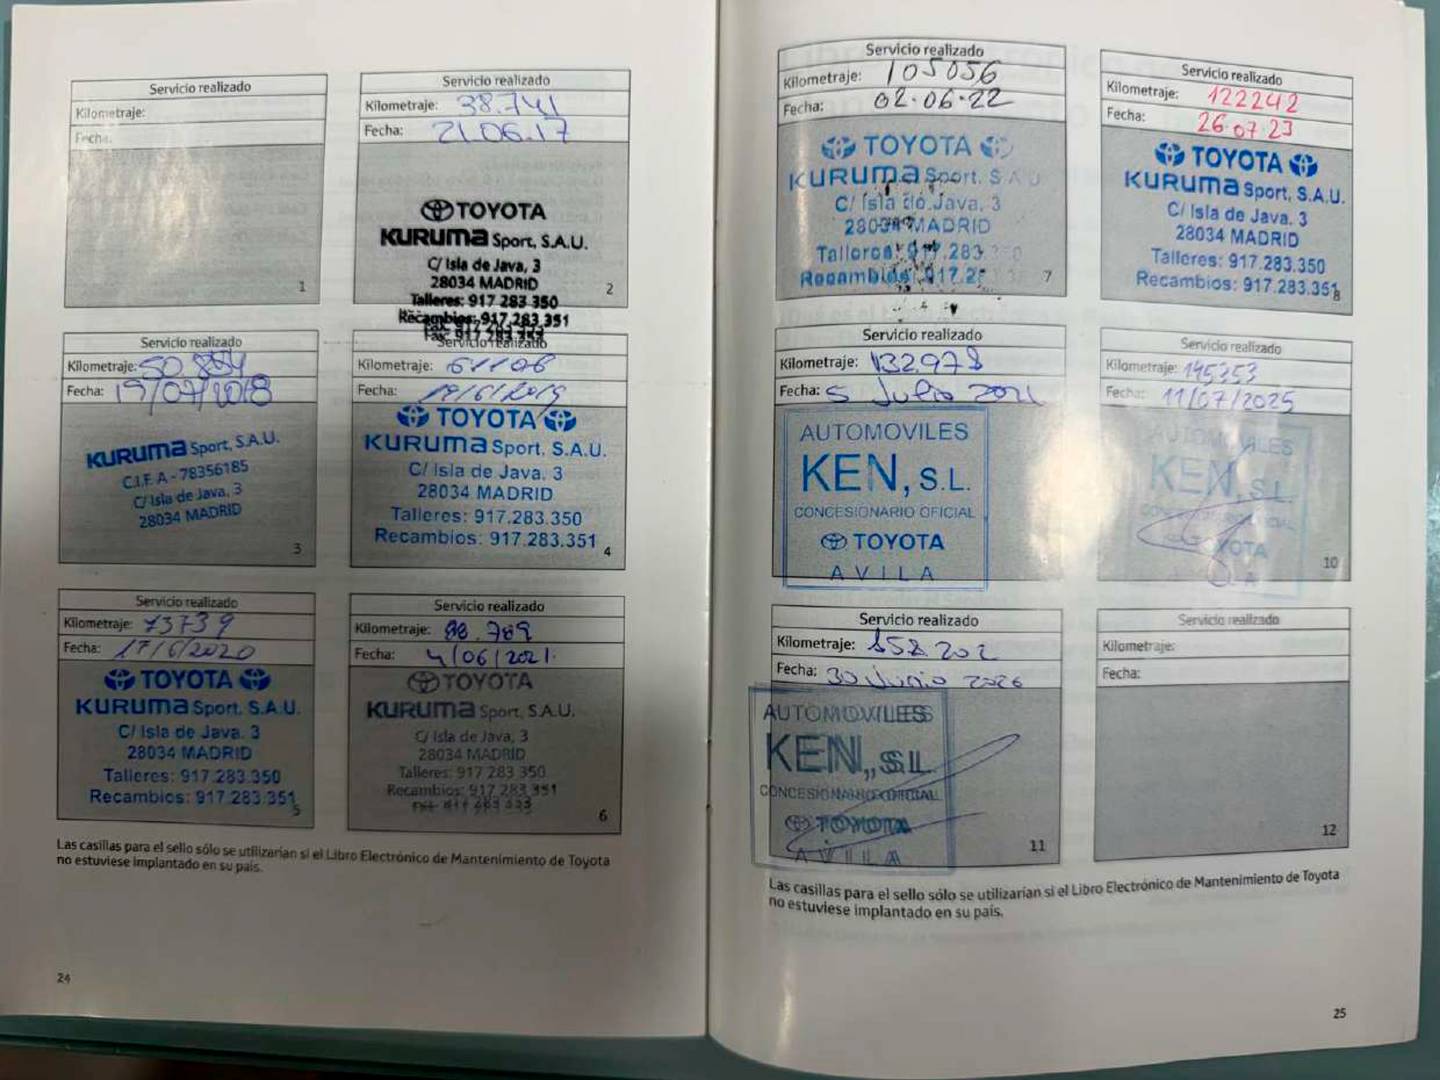 Servicio realizado
Kilometraje:
Fecha:
1
Servicio realizado
Kilometraje: 38.741
Fecha: 21.06.17
TOYOTA
KURUMA Sport, S.A.U.
C/ Isla de Java, 3
28034 MADRID
Talleres: 917 283 350
Recambios: 917.283.351
2
Servicio realizado
Kilometraje: 50.854
Fecha: 19/07/2018
KURUMA Sport, S.A.U.
C.I.F. A - 78356185
C/ Isla de Java, 3
28034 MADRID
3
Servicio realizado
Kilometraje: 61108
Fecha: 19/6/2019
TOYOTA
KURUMA Sport, S.A.U.
C/ Isla de Java. 3
28034 MADRID
Talleres: 917.283.350
Recambios: 917.283.351
4
Servicio realizado
Kilometraje: 73739
Fecha: 17/6/2020
TOYOTA
KURUMA Sport. S.A.U.
C/ Isla de Java. 3
28034 MADRID
Talleres: 917.283.350
Recambios: 917.283.351
5
Servicio realizado
Kilometraje: 88.789
Fecha: 4/06/2021.
TOYOTA
KURUMA Sport, S.A.U.
C/ Isla de Java, 3
28034 MADRID
Talleres: 917 283 350
Recambios: 917.283.351
6
Las casillas para el sello sólo se utilizarían si el Libro Electrónico de Mantenimiento de Toyota
no estuviese implantado en su país.
24
Servicio realizado
Kilometraje: 105056
Fecha: 02.06.22
TOYOTA
KURUMA Sport. S.A.U
C/ Isla de Java, 3
28034 MADRID
Talleres: 917.283
Recambios: 917.28
7
Servicio realizado
Kilometraje: 122242
Fecha: 26.07.23
TOYOTA
KURUMA Sport, S.A.U.
C/ Isla de Java. 3
28034 MADRID
Talleres: 917.283.350
Recambios: 917.283.351
8
Servicio realizado
Kilometraje: 132978
Fecha: 5 Julio
AUTOMOVILES
KEN, S.L.
CONCESIONARIO OFICIAL
TOYOTA
AVILA
Servicio realizado
Kilometraje: 145353
Fecha: 11/07/2025
AUTOMOVILES
KEN, S.L.
TOYOTA
10
Servicio realizado
Kilometraje: 158.202
Fecha: 30 Junio 2026
AUTOMOVILES
KEN, S.L.
CONCESIONARIO OFICIAL
TOYOTA
AVILA
11
Servicio realizado
Kilometraje:
Fecha:
12
Las casillas para el sello sólo se utilizarían si el Libro Electrónico de Mantenimiento de Toyota
no estuviese implantado en su país.
25